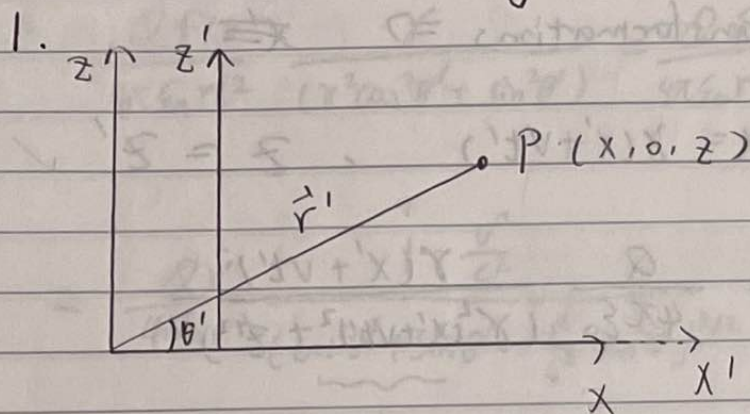 1.
z z'
P (x, 0, z)
r⃗'
θ'
x x'